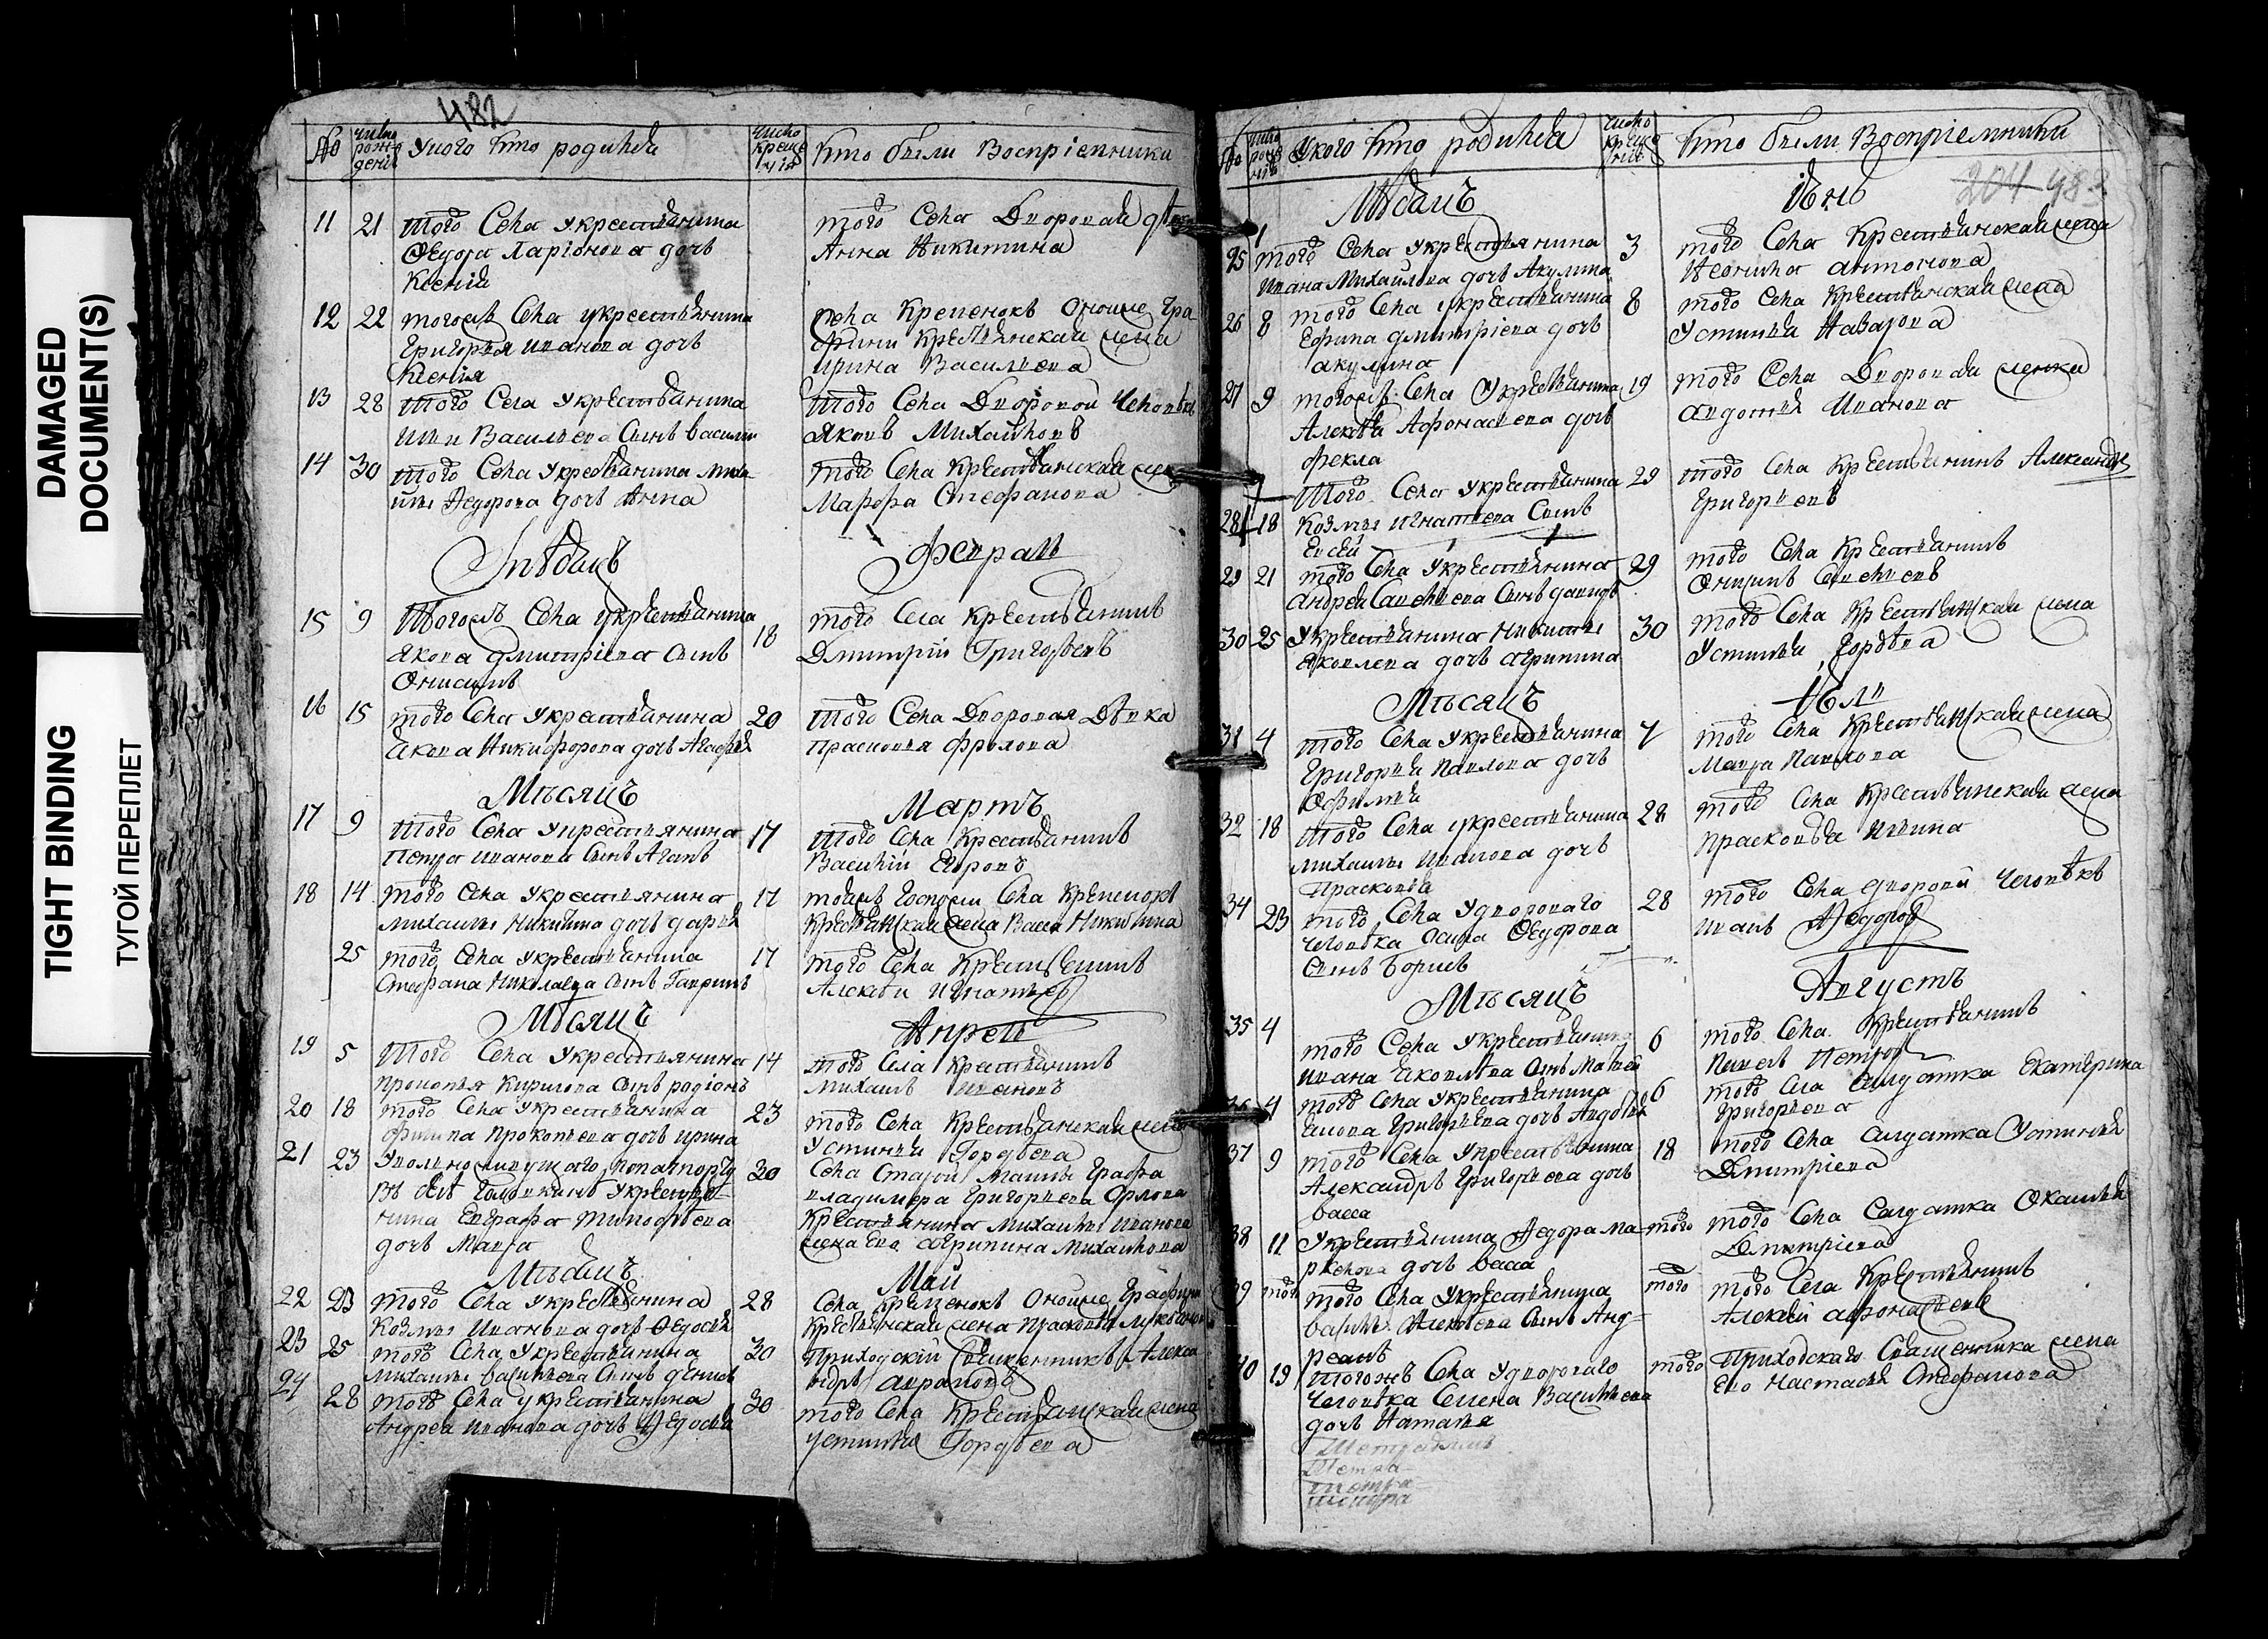 DAMAGED
DOCUMENT(S)
TIGHT BINDING
ТУГОЙ ПЕРЕПЛЕТ
482
№ число рожденія У кого кто родился число крещенія Кто были Воспріемники
11 21 того Села у крестьянина
Ѳедора Ларіонова дочь
Ксенія
того Села Дворовая
Анна Никитина
12 22 тогожъ Села у крестьянина
Григорья Иванова дочь
Ксенія
Села Кременокъ Оноиже Гра
фини Крестьянская жена
Ирина Васильева
13 28 того Села у крестьянина
Васильева Сынъ Василий
того Села Дворовой Человѣкъ
Яковъ Михайловъ
14 30 того Села у крестьянина Миха-
йлы Ѳедорова дочь Анна
того Села Крестьянская жена
Марфа Стефанова
Мѣсяцъ Февраль
15 9 Тогожъ Села у крестьянина
Якова Дмитріева Сынъ
Онисимъ
18 того Села Крестьянинъ
Дмитрій Григорьевъ
16 15 того Села у крестьянина
Якова Никифорова дочь Агафья
20 того Села Дворовая Дѣвка
Прасковья Фролова
Мѣсяцъ Мартъ
17 9 того Села у крестьянина
Петра Иванова Сынъ Агапъ
17 того Села Крестьянинъ
Василій Егоровъ
18 14 того Села у крестьянина
Михаилы Никитина дочь Дарья
17 тояжъ Госпожи Села Кременокъ
Крестьянская жена Васса Никитина
25 того Села у крестьянина
Стефана Николаева Сынъ Гавриилъ
17 того Села Крестьянинъ
Алексѣй Игнатьев
Мѣсяцъ Апрель
19 5 того Села у крестьянина
Прокопья Кирилова Сынъ Родіонъ
14 того Села Крестьянинъ
Михаилъ Ивановъ
20 18 того Села у крестьянина
Филипа Прокопьева дочь Ирина
23 того Села Крестьянская жена
Устинья Гордѣева
21 23 У
Укрестья-
нина Евграфа Тимофѣева
дочь Мавра
30 Села Старой Майны Графа
Владимера Григорьева Орлова
Крестьянина Михаилы Иванова
жена Ево Агрипина Михаилова
Мѣсяцъ Май
22 23 того Села у крестьянина
Козмы Иванова дочь Ѳедосья
28 Села Кременокъ Оноиже Графини
Крестьянская жена Прасковья
23 25 того Села у крестьянина
Михаилы Васильева Сынъ Денисъ
30 Приходскій Священникъ Алекса
ндръ Авраамовъ
24 28 того Села у крестьянина
Андрея Иванова дочь Ѳедосья
30 того Села Крестьянская жена
Устинья Гордѣева
№ У кого кто родился Кто были Воспріемники
204 483
Мѣсяцъ Іюнь
25 1 того Села у крестьянина
Ивана Михайлова дочь Акулина
3 того Села Крестьянская жена
Неонила Антонова
26 8 того Села у крестьянина
Ефима Дмитріева дочь
Акулина
8 того Села Крестьянская жена
Устинья Назарова
27 9 тогожъ Села у крестьянина
Алексѣя Афонасьева дочь
Фекла
19 того Села Дворовая женка
Авдотья Иванова
28 18 того Села у крестьянина
Козмы Игнатьева Сынъ
Евсей
29 того Села Крестьянинъ Александръ
Григорьевъ
29 21 того Села у крестьянина
Андрея Савельева Сынъ Давидъ
29 того Села Крестьянинъ
Онисимъ Савельевъ
30 25 У крестьянина Никиты
Яковлева дочь Агрипина
30 того Села Крестьянская жена
Устинья Гордѣева
Мѣсяцъ Іюль
31 4 того Села у крестьянина
Григорья Павлова дочь
Ефимья
7 того Села Крестьянская жена
Мавра Павлова
32 18 того Села у крестьянина
Михаилы Иванова дочь
Прасковья
28 того Села Крестьянская жена
Прасковья Ильина
34 23 того Села у двороваго
человѣка Осипа Ѳедорова
Сынъ Борисъ
28 того Села дворовой Человѣкъ
Иванъ Ѳедоров
Мѣсяцъ Августъ
35 4 того Села у крестьянина
Ивана Яковлева Сынъ Матвей
6 того Села Крестьянинъ
Петров
36 4 того Села у крестьянина
Григорьева дочь Авдотья
6 того Села Салдатка Екатерина
Григорьева
37 9 того Села у крестьянина
Александръ Григорьева дочь
Васса
18 того Села Салдатка Устинья
Дмитріева
38 11 У крестьянина Ѳедора Ма-
ркелова дочь Васса
того того Села Салдатка
Дмитріева
39 того того Села у крестьянина
Василья Алексѣева Сынъ Анд-
реанъ
того того Села Крестьянинъ
Алексей Афонасьевъ
40 19 Тогожъ Села у двороваго
Человѣка Семена Васильева
дочь Наталья
того Приходскаго Священника жена
Ево Настасья Стефанова